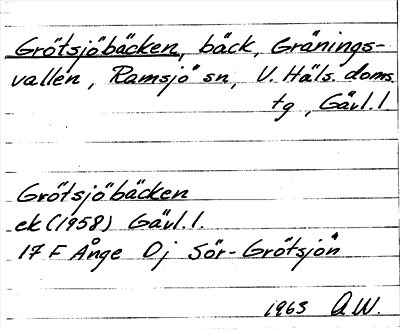 Grötsjöbäcken, bäck, Gränings-
vallen, Ramsjö sn, V. Häls. doms.
tg, Gävl. l
Grötsjöbäcken
ek (1958) Gävl. l.
17 F Ånge Dj Sör-Grötsjön
1963 A.W.